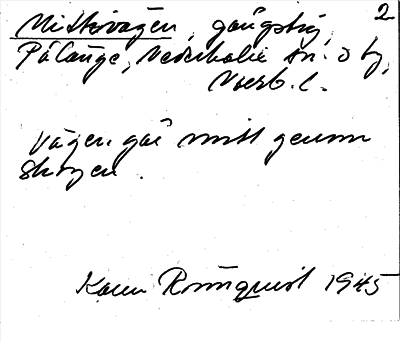 2
Mittivägen, gångstig,
På Långe, Nederkalix sn. o by,
Norrb. l.
Vägen går mitt genom
skogen.
Karin Rönnquist 1945